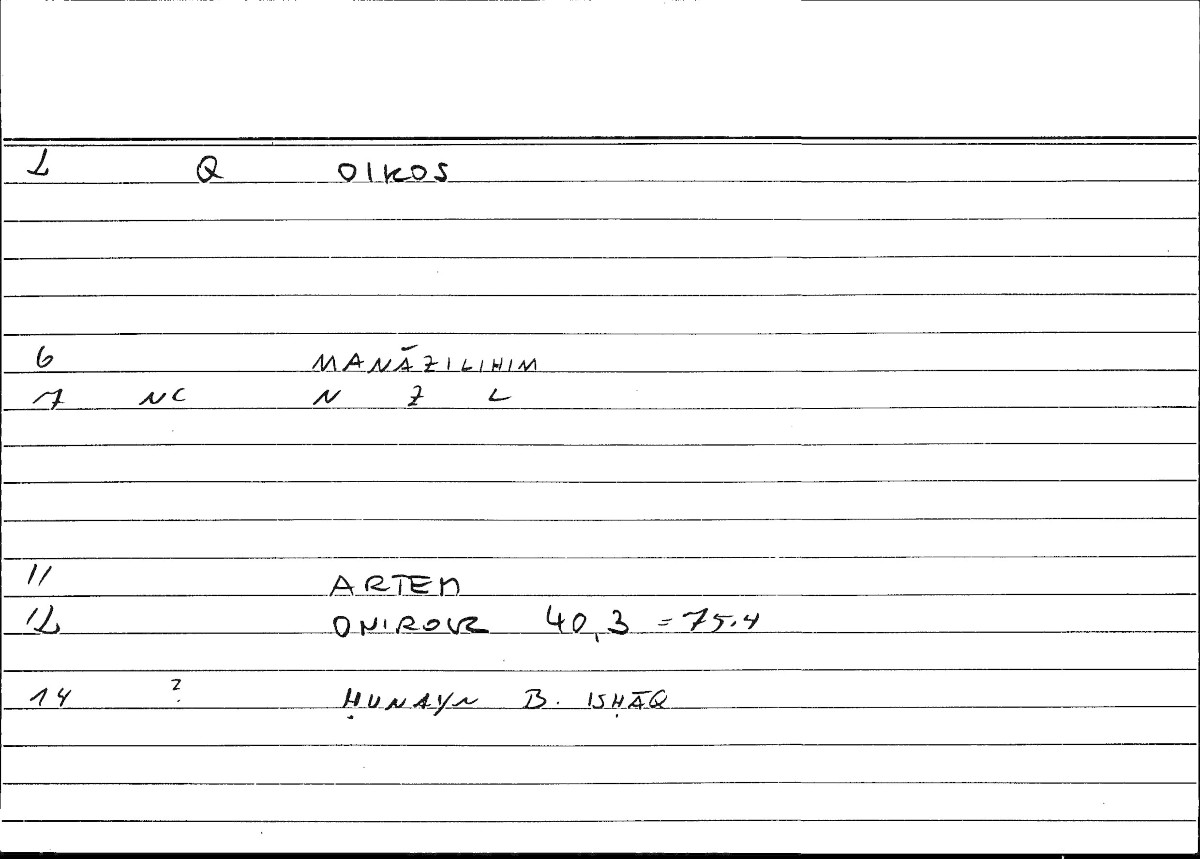 1 Q OIKOS
6 MANĀZILIHIM
7 NC N Z L
11 ARTEM
12 ONIROCR 40,3 = 75.4
14 ? ḤUNAYN B. ISḤĀQ